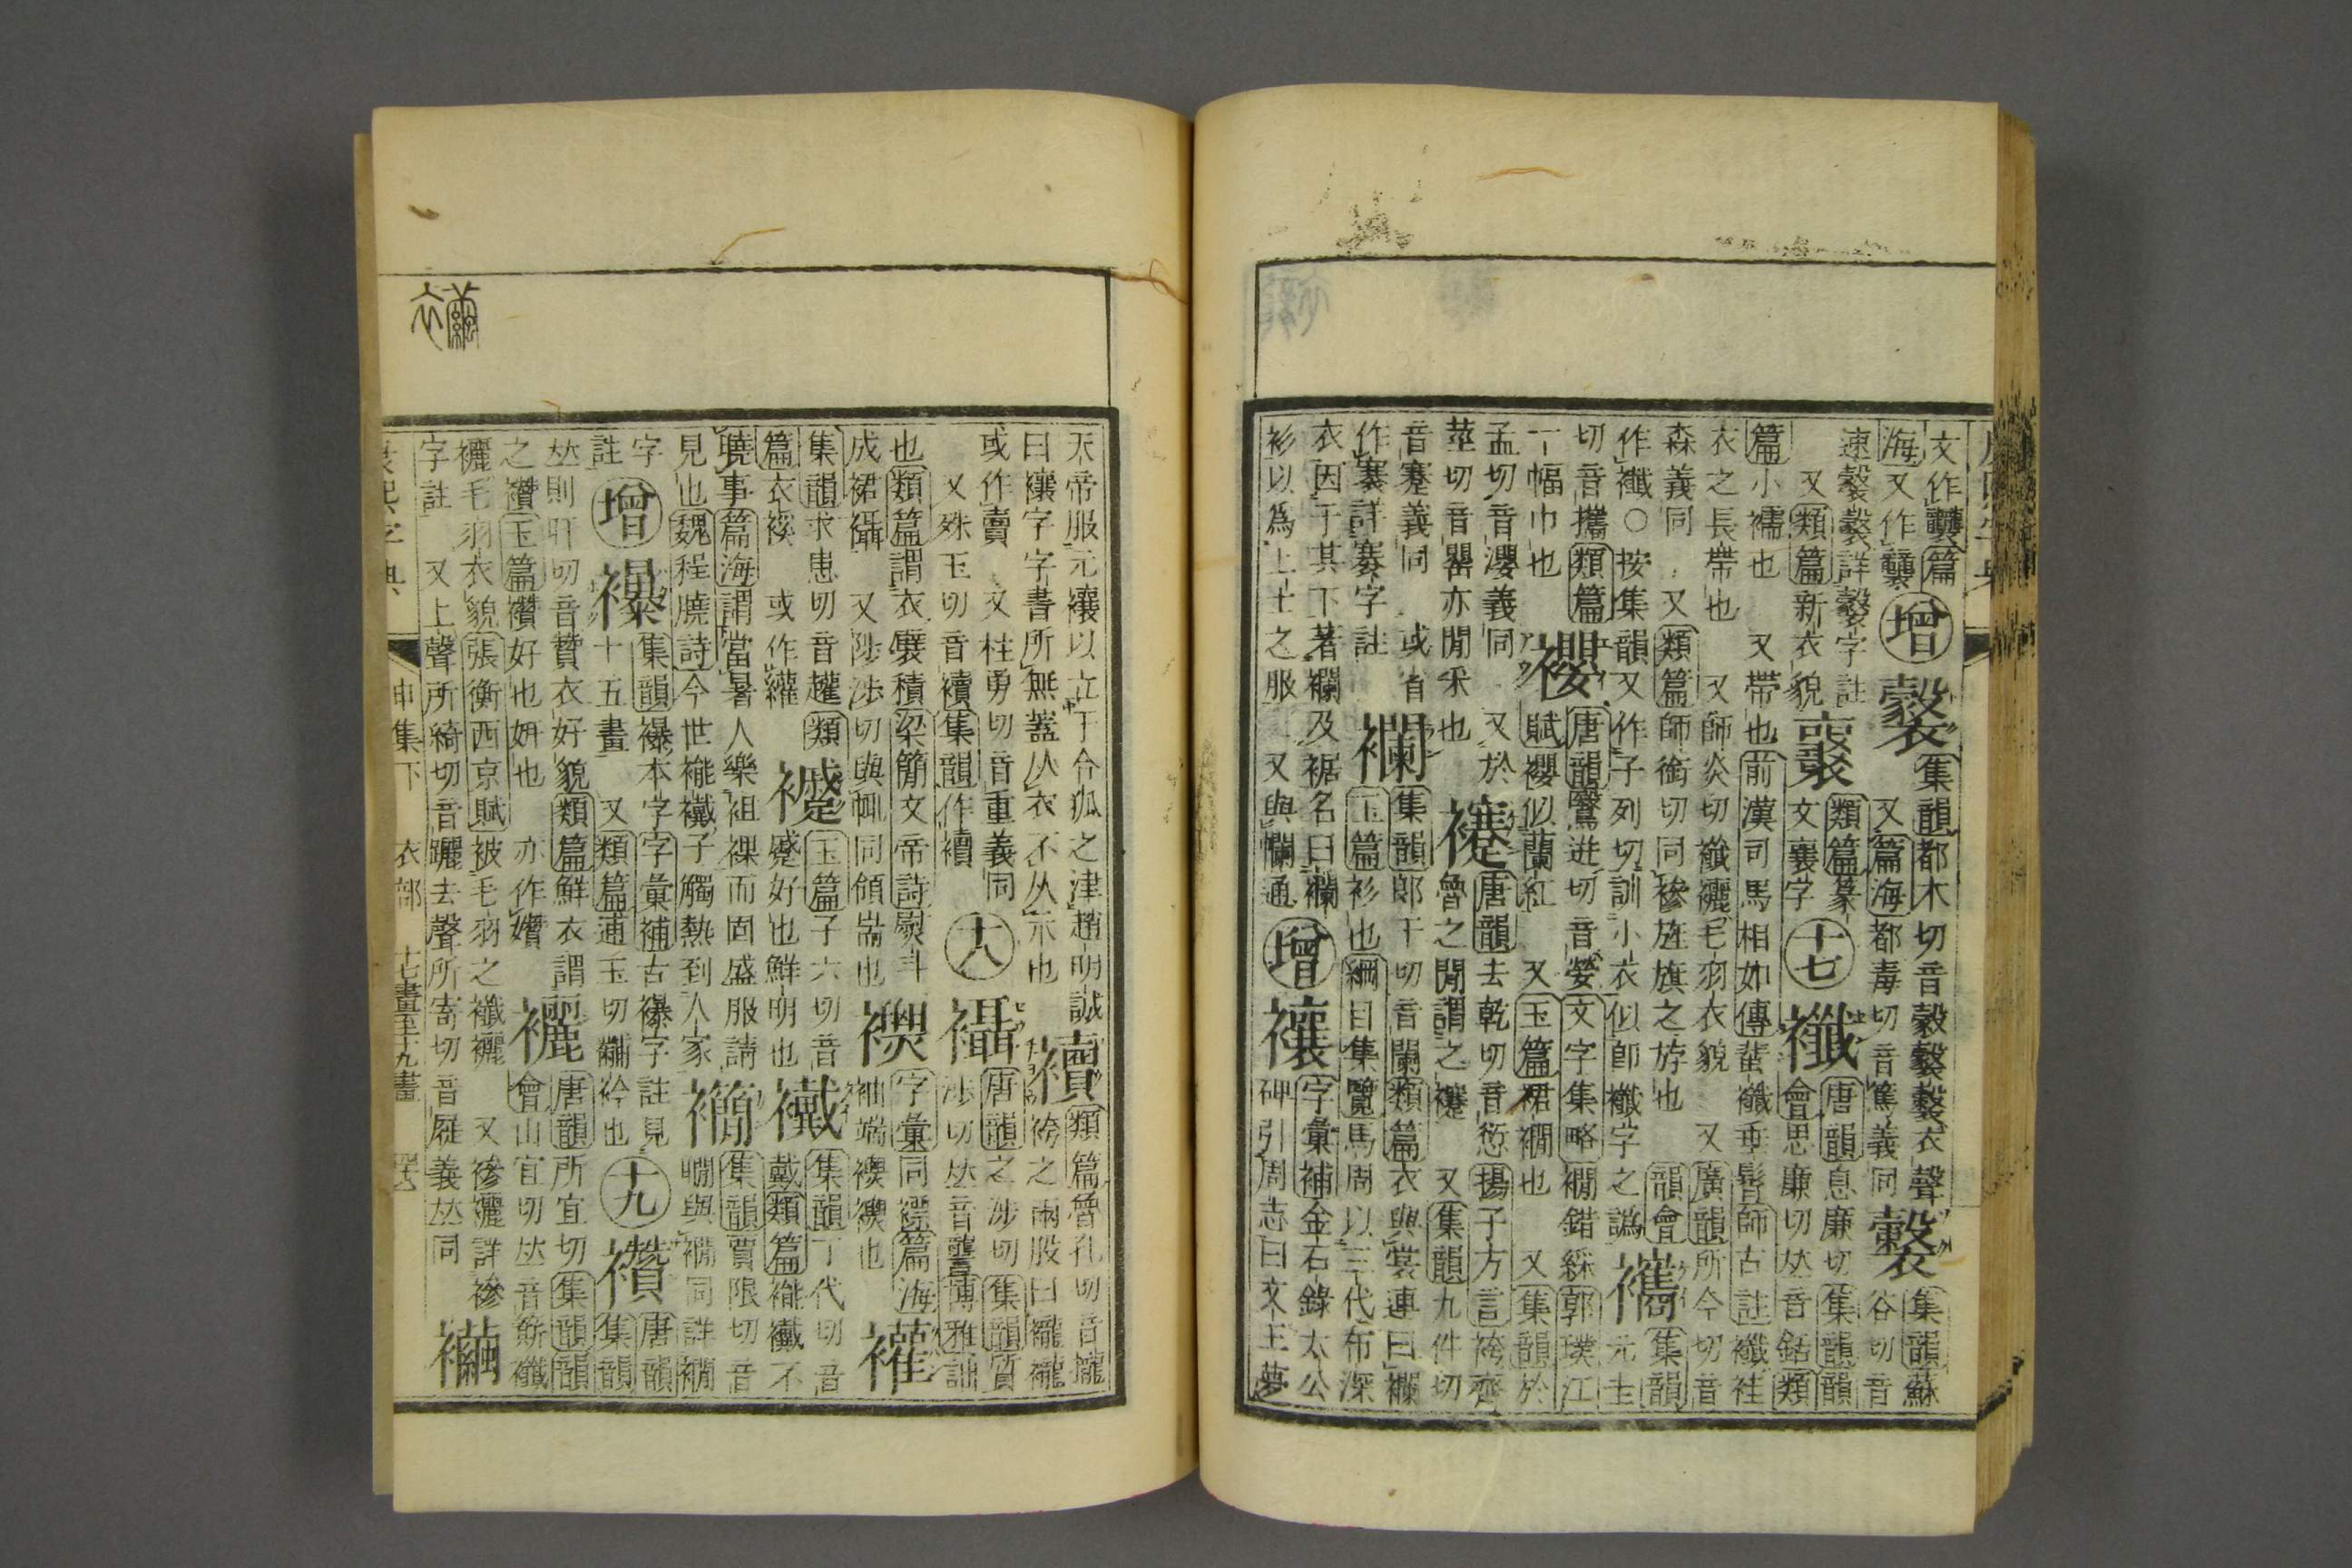 文作襲篇
海又作襲
增
集韻都木切音縠縠衣聲
又篇海都毒切音篤義同
集韻蘇
谷切音
速縠詳字註
又類篇新衣貌
類篇篆
文襄字
十七
襳
唐韻息廉切集韻韻
會思廉切𠀤音銛類
篇小襦也 又帶也前漢司馬相如傳蜚襳垂髾師古註襳袿
衣之長帶也 又師炎切襳襹毛羽衣貌 又廣韻所今切音
森義同 又類篇師銜切同襂旌旗之斿也 韻會
作襳○按集韻又作子列切訓小衣似卽襳字之譌
集韻
元圭
切音攜類篇
一幅巾也
䙬
唐韻鷖迸切音嫈文字集略襉錯綵郭璞江
賦䙬似蘭紅 又玉篇裙襉也 又集韻於
孟切音瀴義同 又於
莖切音罌亦閒采也
䙭
唐韻去乾切音愆揚子方言袴齊
魯之閒謂之䙭 又集韻九件切
音蹇義同 或省
作褰詳褰字註
襴
集韻郎干切音闌類篇衣與裳連曰襴
玉篇衫也綱目集覽馬周以三代布深
衣因于其下著襴及裾名曰襴
衫以爲上士之服 又與幱通
增
禳
字彙補金石錄太公
碑引周志曰文王夢
天帝服元禳以立于令狐之津趙明誠
曰禳字字書所無蓋从衣不从示也
襩
類篇魯孔切音攏
袴之兩股曰襱襱
或作賣 又柱勇切音重義同
又殊玉切音襩集韻作襩
十八
襵
唐韻之涉切集韻質
涉切𠀤音讋博雅詘
也類篇謂衣襞積梁簡文帝詩熨斗
成裙襵 又陟涉切與㡇同領耑也
字彙同襈篇海
袖端
集韻求患切音趯類
篇衣襻 或作
玉篇子六切音
蹙好也鮮明也
襶
集韻丁代切音
戴類篇褦襶不
曉事篇海謂當暑人樂袒裸而固盛服請
見也魏程曉詩今世褦襶子觸熱到人家
集韻賈限切音
襉與襉同詳襉
字
註
增
集韻襮本字字彙補古襮字註見
十五畫 又類篇逋玉切黼衿也
十九
襸
唐韻
集韻韻
𠀤則旰切音贊衣好貌類篇鮮衣謂
之襸玉篇襸好也姸也 亦作㜺
襹
唐韻所宜切集韻韻
會山宜切𠀤音簁襳
襹毛羽衣貌張衡西京賦被毛羽之襳襹 又襂襹詳襂
字註 又上聲所綺切音躧去聲所寄切音屣義𠀤同
襺
康熙字典
申集下 衣部 十七畫至十九畫